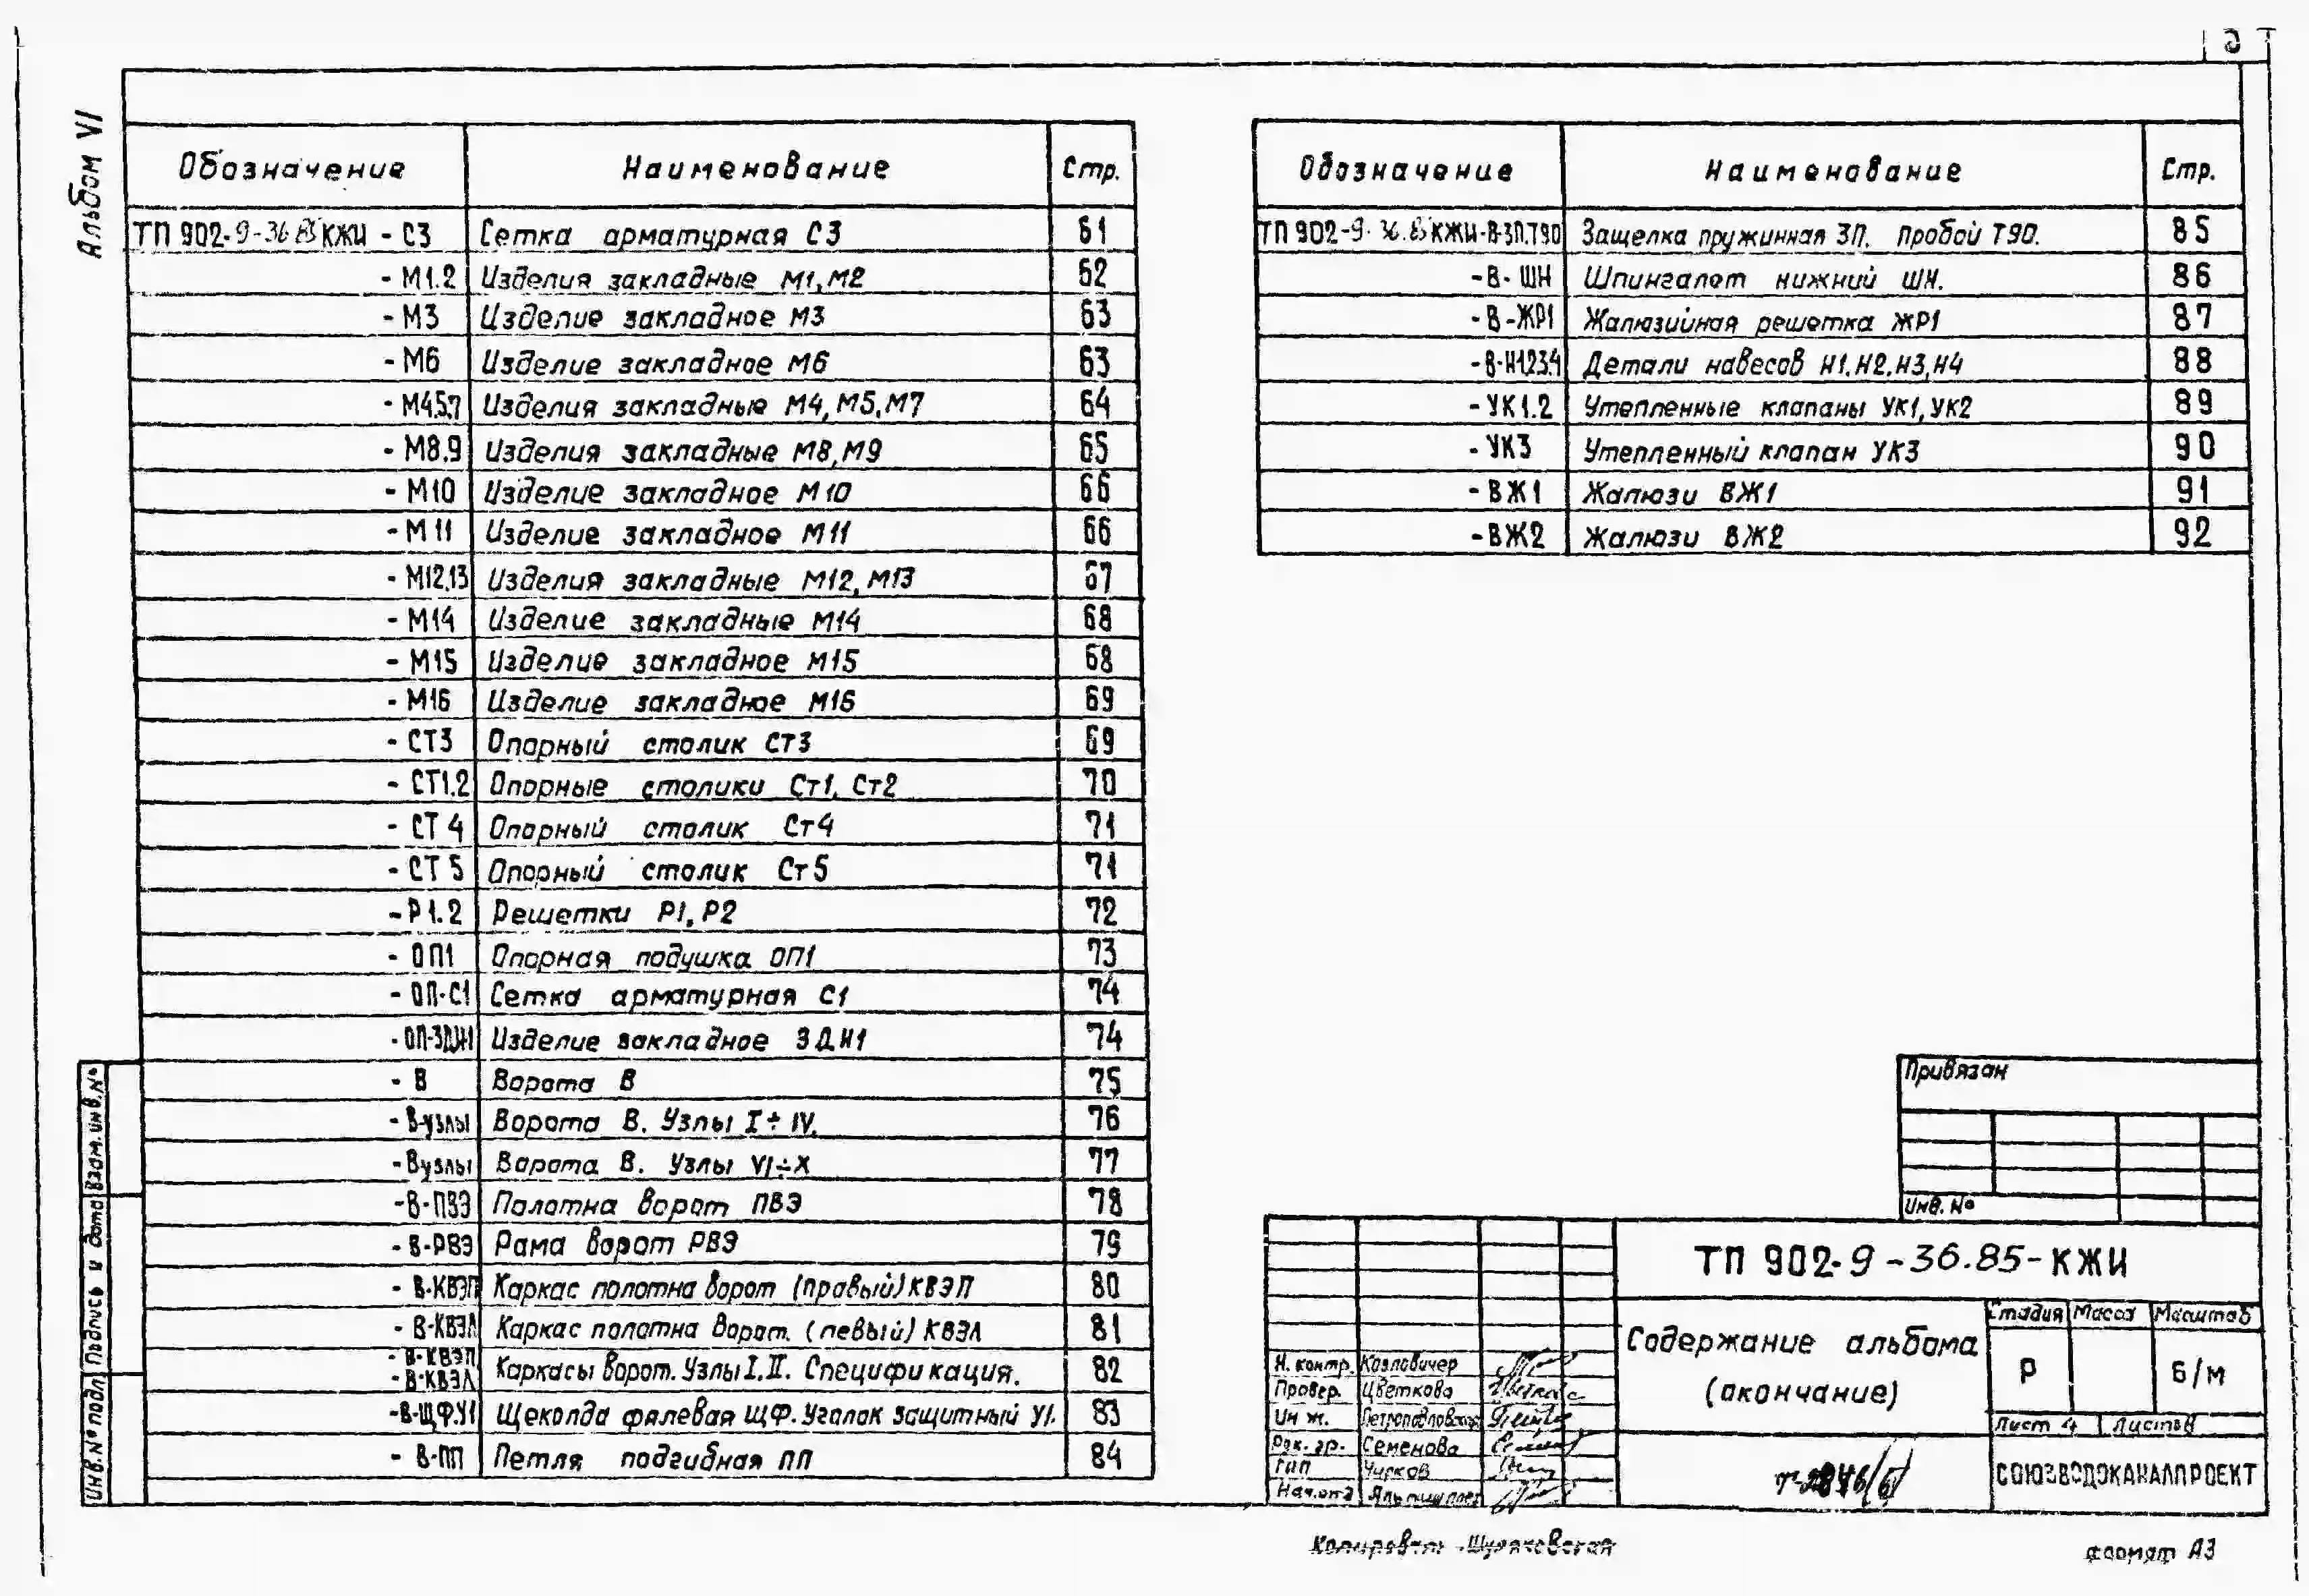 Альбом VI
Обозначение Наименование Стр.
ТП 902-9-36.85 КЖИ - С3 Сетка арматурная С3 61
- М1.2 Изделия закладные М1, М2 62
- М3 Изделие закладное М3 63
- М6 Изделие закладное М6 63
- М4.5.7 Изделия закладные М4, М5, М7 64
- М8.9 Изделия закладные М8, М9 65
- М10 Изделие закладное М10 66
- М11 Изделие закладное М11 66
- М12.13 Изделия закладные М12, М13 67
- М14 Изделие закладные М14 68
- М15 Изделие закладное М15 68
- М16 Изделие закладное М16 69
- СТ3 Опорный столик Ст3 69
- СТ1.2 Опорные столики Ст1, Ст2 70
- СТ 4 Опорный столик Ст4 71
- СТ 5 Опорный столик Ст5 71
- Р1.2 Решетки Р1, Р2 72
- ОП1 Опорная подушка ОП1 73
- ОП-С1 Сетка арматурная С1 74
- ОП-ЗДИ1 Изделие закладное ЗДИ1 74
- В Ворота В 75
- В-узлы Ворота В. Узлы I÷IV. 76
- В узлы Ворота В. Узлы VI÷X 77
- В-ПВЭ Полотна ворот ПВЭ 78
- В-РВЭ Рама ворот РВЭ 79
- В-КВЭП Каркас полотна ворот (правый) КВЭП 80
- В-КВЭЛ Каркас полотна ворот. (левый) КВЭЛ 81
- В-КВЭП
- В-КВЭЛ Каркасы ворот. Узлы I, II. Спецификация. 82
- В-ЩФ.У1 Щеколда фалевая ЩФ. Уголок защитный У1. 83
- В-ПП Петля подгибная ПП 84
Обозначение Наименование Стр.
ТП 902-9-36.85 КЖИ-В-ЗП.Т90 Защелка пружинная ЗП. пробой Т90. 85
- В- ШН Шпингалет нижний ШН. 86
- В-ЖР1 Жалюзийная решетка ЖР1 87
- В-Н1.2.3.4 Детали навесов Н1. Н2. Н3, Н4 88
- УК1.2 Утепленные клапаны УК1, УК2 89
- УК3 Утепленный клапан УК3 90
- ВЖ1 Жалюзи ВЖ1 91
- ВЖ2 Жалюзи ВЖ2 92
Привязан
Инв. №
ТП 902-9-36.85-КЖИ
Содержание альбома
(окончание)
Стадия Масса Масштаб
Р б/м
Лист 4 Листов
СОЮЗВОДОКАНАЛПРОЕКТ
Н. контр. Козловичер
Провер. Цветкова
Инж. Петропавловская
Рук. гр. Семенова
ГИП Чирков
Нач. отд
Инв. № подл Подпись и дата Взам. инв. №
Копировал
Формат А3